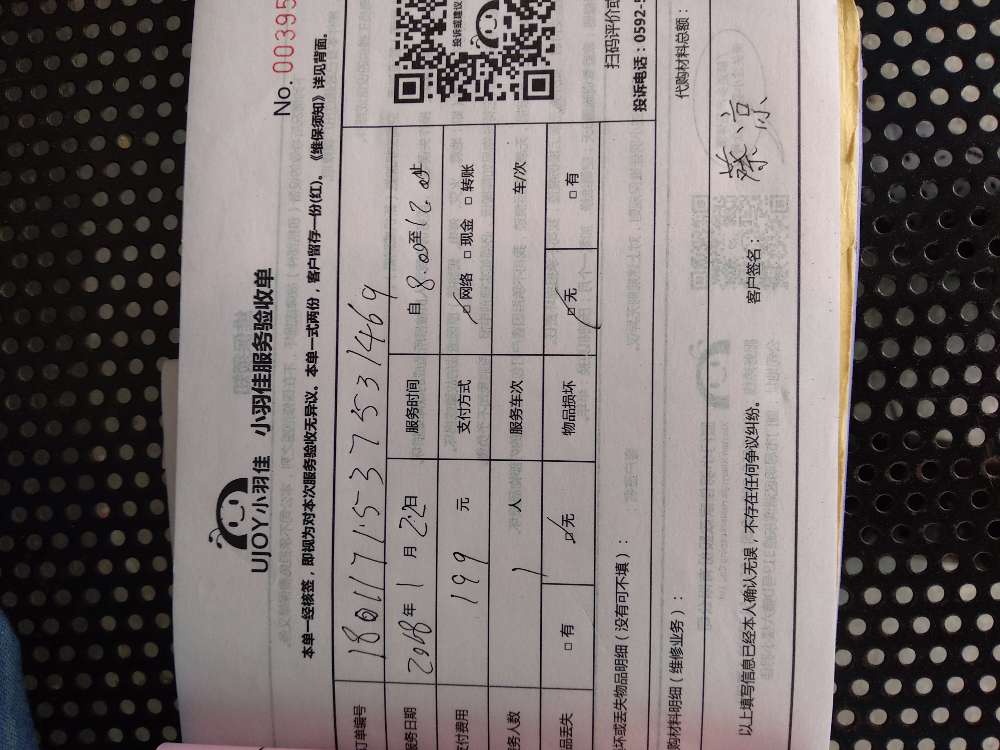 UJOY小羽佳 小羽佳服务验收单
No.00395
本单一经核签，即视为对本次服务验收无异议。本单一式两份，客户留存一份(红)。《维保须知》详见背面。
订单编号 1801171537531469
服务日期 2018年 1 月 22日 服务时间 自 8.00至12.00止
支付费用 199 元 支付方式 □网络 □现金 □转账
服务人数 1 人 服务车次 车/次
物品丢失 □有 □无 物品损坏 □无 □有
损坏或丢失物品明细（没有可不填）：
投诉或建议
扫码评价或
投诉电话：0592-5
代购材料明细（维修业务）： 代购材料总额：
以上填写信息已经本人确认无误，不存在任何争议纠纷。 客户签名：